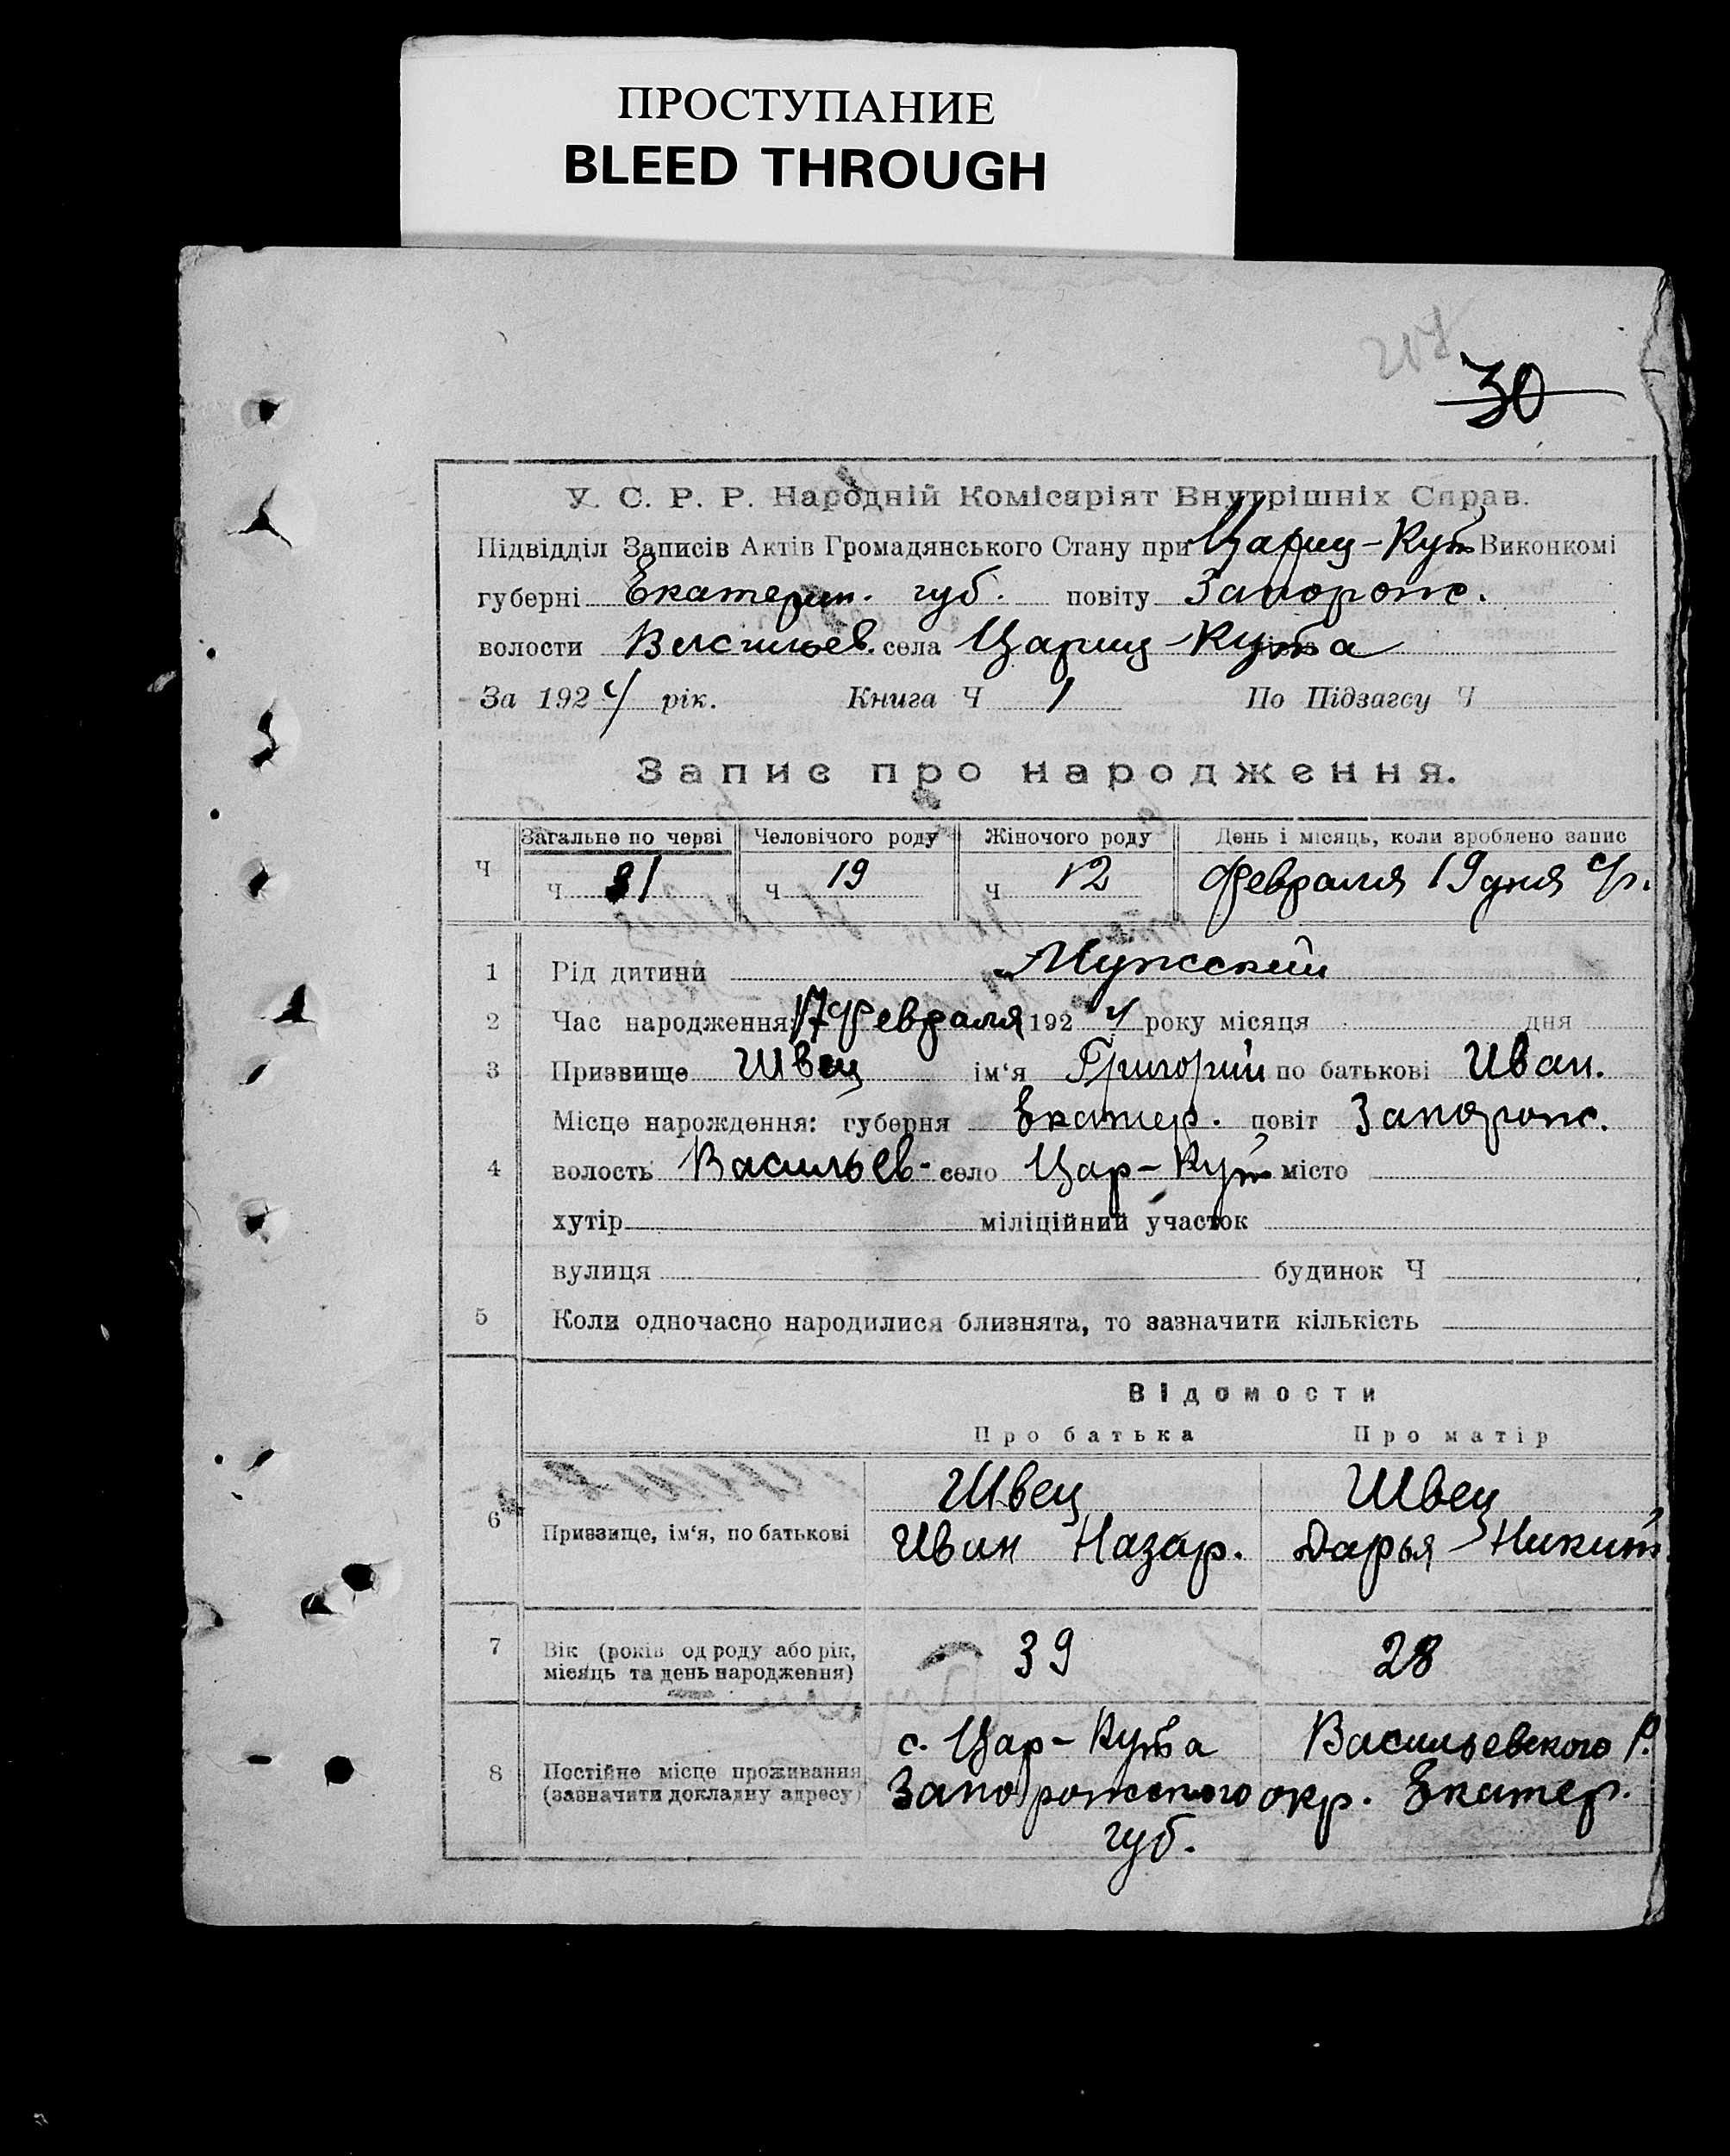 ПРОСТУПАНИЕ
BLEED THROUGH
30
У. С. Р. Р. Народній Комісаріят Внутрішніх Справ.
Підвідділ Записів Актів Громадянського Стану при Цариц-Кут Виконкомі
губерні Екатерин. губ. повіту Запорож.
волости Васильев. села Цариц-Кута
За 1924 рік. Книга Ч 1 По Підзагсу Ч
Запис про народження.
Загальне по черзі Человічого роду Жіночого роду День і місяць, коли зроблено запис
Ч Ч 31 Ч 19 Ч 12 Февраля 19 дня
1 Рід дитини Мужский
2 Час народження: 17 Февраля 1924 року місяця дня
3 Призвище Швец ім‘я Григорий по батькові Иван.
Місце нарождення: губерня Екатер. повіт Запорож.
4 волость Васильев- село Цар-Кут місто
хутір міліційний участок
вулиця будинок Ч
5 Коли одночасно народилися близнята, то зазначити кількість
Відомости
Про батька Про матір
Швец Швец
6 Призвище, ім‘я, по батькові Иван Назар. Дарья Никит
7 Вік (років од роду або рік, 39 28
місяць та день народження)
с. Цар-Кута Васильевского Р.
8 Постійне місце проживання Запорожского окр. Екатер.
(зазначити докладну адресу) губ.